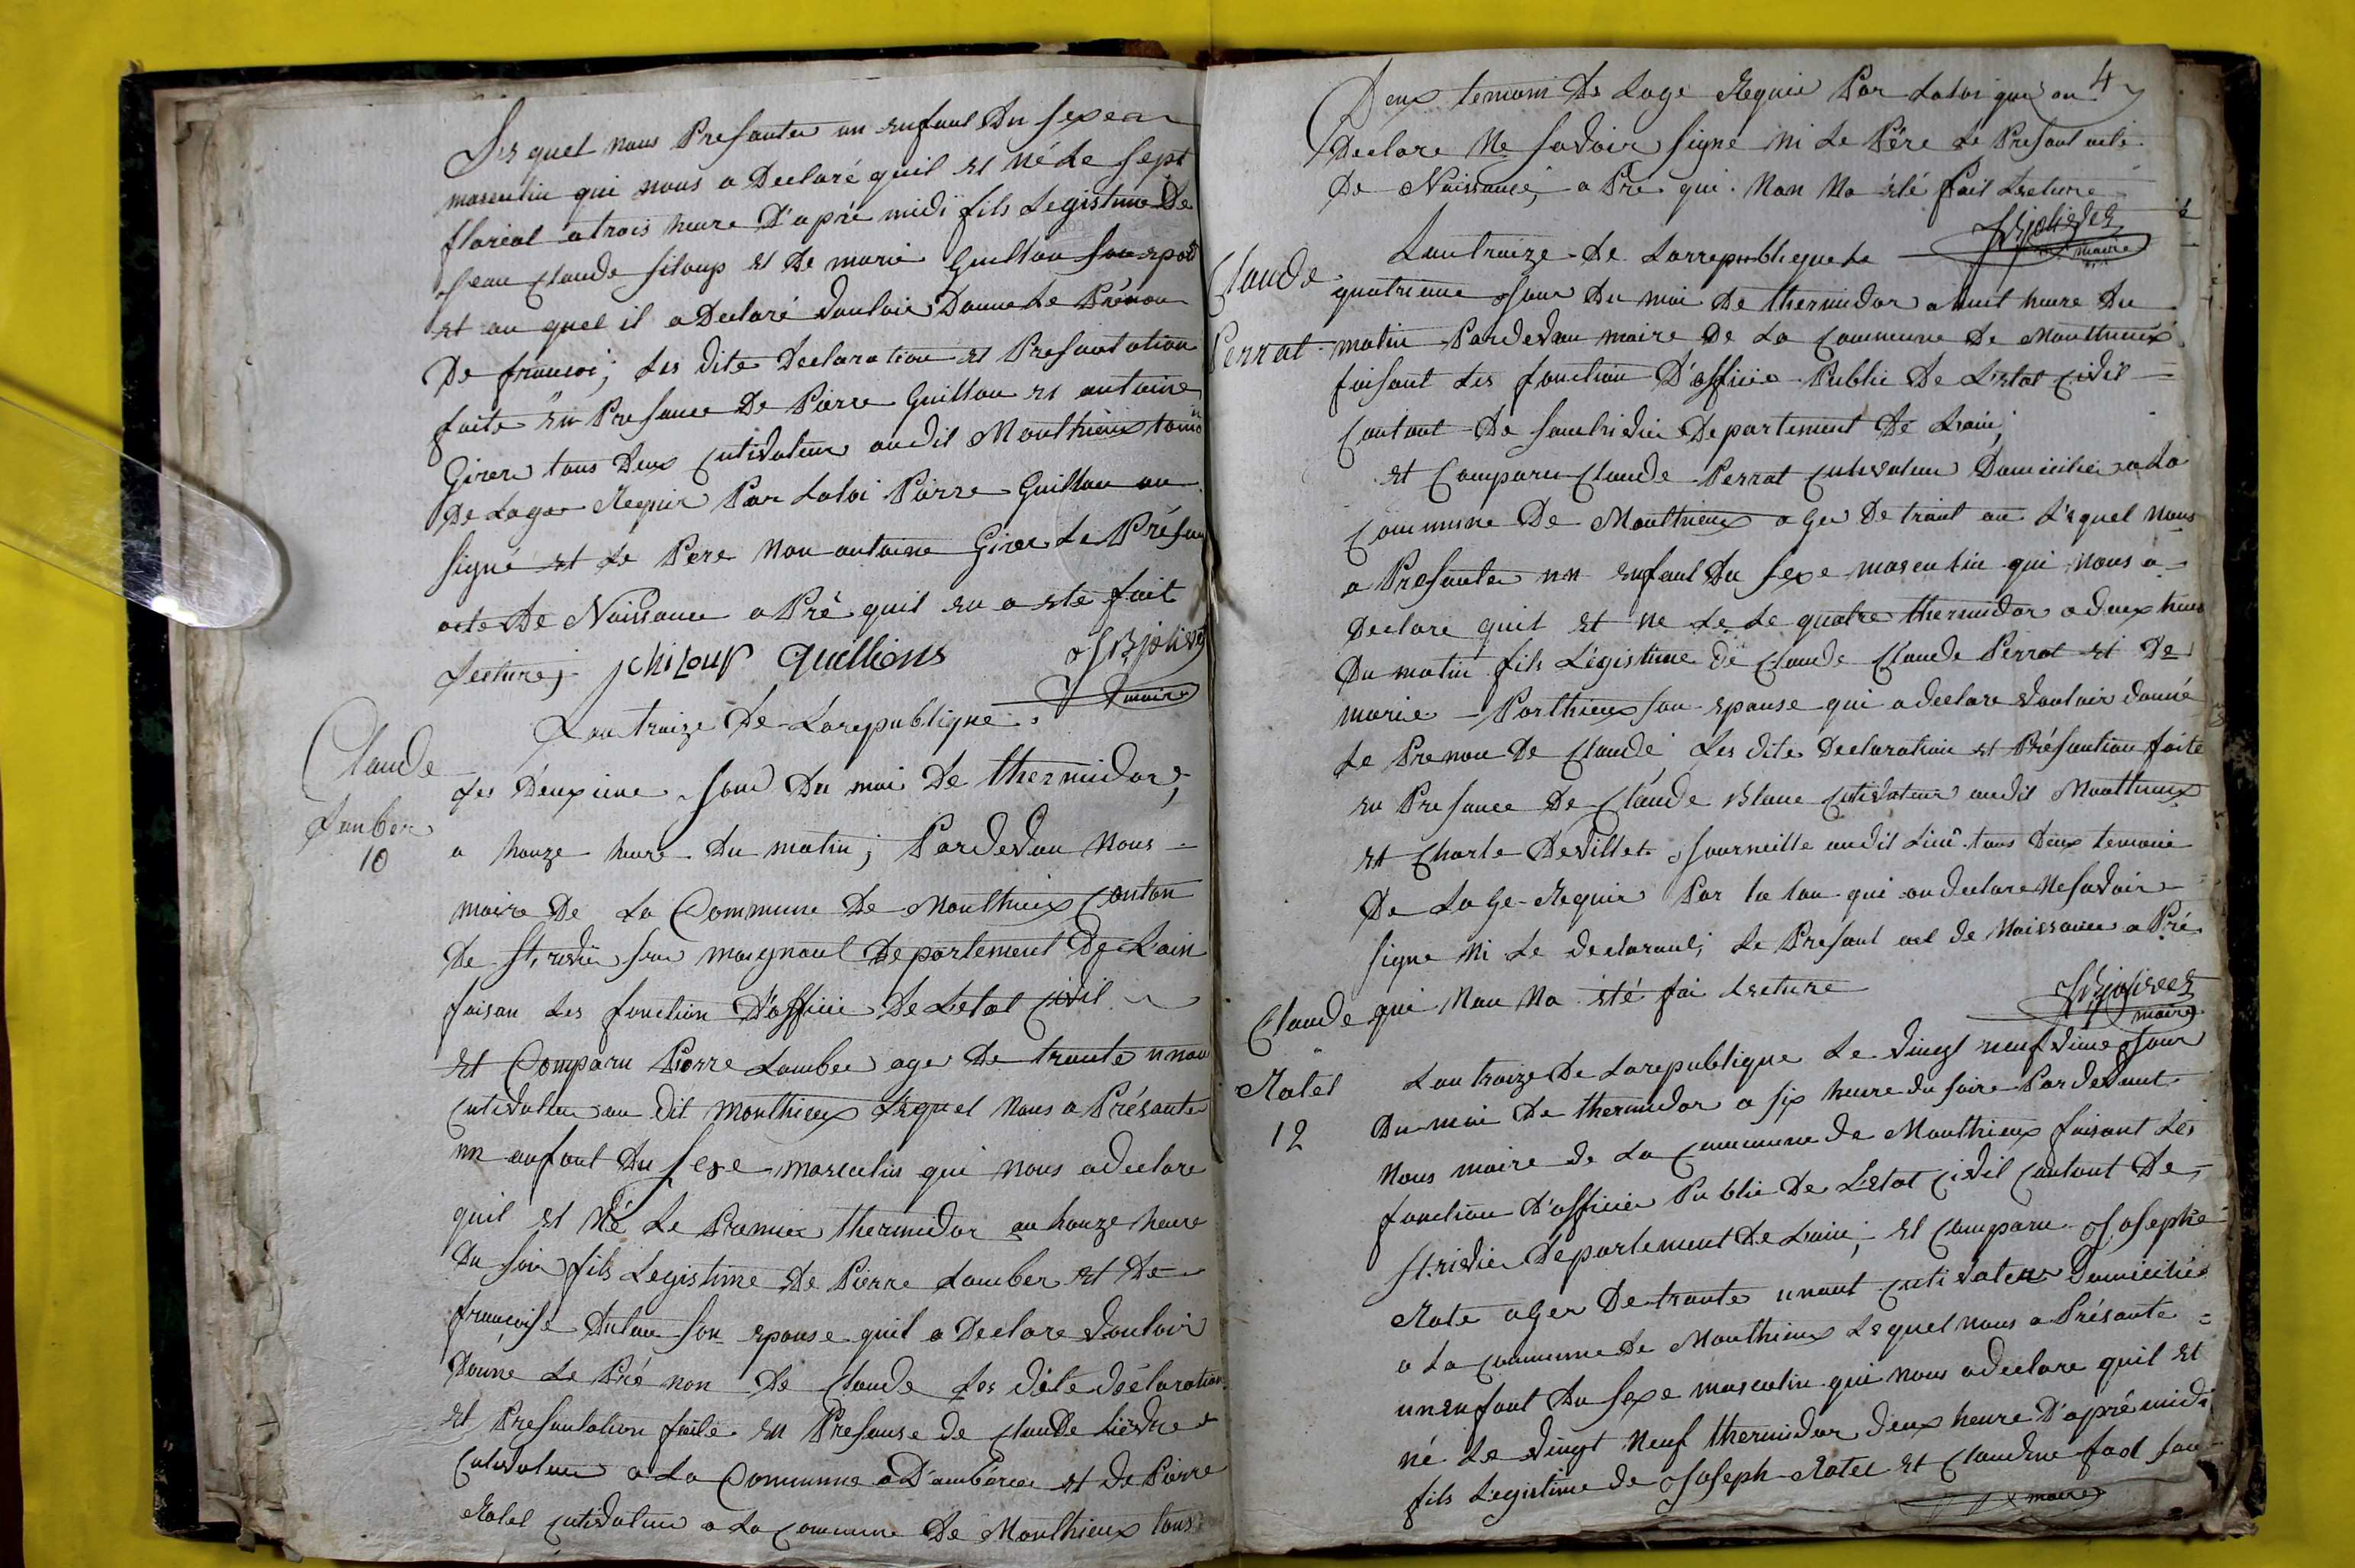 Les quel nous Presanter un enfant du sexe
masculin qui nous a Declaré quil et né Le sept
floreal a trois heure D'aprè midi fils Legistime De
Jean Claude siloup et De marie Guillon son epo
et au quel il a Declaré vouloir Donne Le Prénon
De françoi; Les dite Declaration et Presantation
faite en Presance De Pierre Guillon et antoine
Girer tous Deux Cutivateur audit Monthieux
De Lage Requir Par Laloi Pierre Guillon on
signé et Le Pere Non antoine Girer Le Présan
acte De Naissance a Prè quil en a ete fait
Lecture; j chiLouP Guillions JB jolived
maire
Lan traize De Larepublique
Claude
Lamber
10
Les Deuxieme Jour Du moi De thermidor,
a honze heure Du matin; Pardevan Nous
maire De La Commune De Monthieux Canton
De St, rivier Departement De Lain
faisan Les fonction D'officie De Letat Civil
et Comparu Pierre Lamber age De trante unan
Cutivateur au dit Monthieux Lequel Nous a Présante
un anfant Du sexe masculin qui nous a declare
quil et Né Le Premier thermidor au honze heure
Du soir fils Legistime De Pierre Lamber et De
françoise son epouse quil a Declare vouloir
Donne Le Pré non De Claude Les dite déclaration
et Presantation faite en Presanse de Claude
Cutivateur a La Commune D'amberieu et de Pierre
Ratel cutivateur a La Commune De Monthieux tous
4
Deux temoin De Lage Requir Par Laloi qui on
Declare Ne savoir signé ni Le Père Le Presant acte
De Naissance, a Prè qui Non Na été fait Lecture
JB jolived
maire
Claude
Perrat
Lan traize De Larrepublique Le
quatrieme Jour Du moi De thermidor a huit heure Du
matin Pardevan maire De La Commune De Monthieux
faisant Les fonction D'officie Public De L'etat Civil
Cantont De Departement De Lain,
et Comparu Claude Perrat Cutivateur Domicilie a La
Commune De Monthieux a Ger De trant an L'equel Nous
a Presanter un enfant Du sexe masculin qui nous a
Declare quil et Ne Le Le quatre thermidor a deux heure
Du matin fils Légistime de Claude Claude Perrat et De
marie Porthieux son epouse qui a declare vouloir donné
Le Prenon De Claude Les dite Declaration et faite
en Presance De Claude Blanc Cutivateur audit Monthieux
et Charle audit Lieu tous Deux temoin
De Lage Requir Par la Lou qui on declare Ne savoir
signe Ni Le declarant; Le Presant act de Naissance a Prè
qui Non Na été fai Lecture
JB jolived
maire
Claude
Ratel
12
Lan traize De Larepublique Le vingt neuf vime Jour
Du moi De thermidor a six heure du soire Pardevant
Nous maire de La Commune de Monthieux faisant Les
fonction D'officie Public De L'etat Civil Cantont De
St. rivier Departement De Lain; et Comparu Josephe
Rate aGer De trante unant cutivateur Domicilié
a La commune De Monthieux Lequel nous a Présante
un enfant Du sexe masculin qui nous a declare quil et
né Le vingt Neuf thermidor deux heure D'aprè midi
fils Legistime de Joseph Ratel et Claudine son
maire